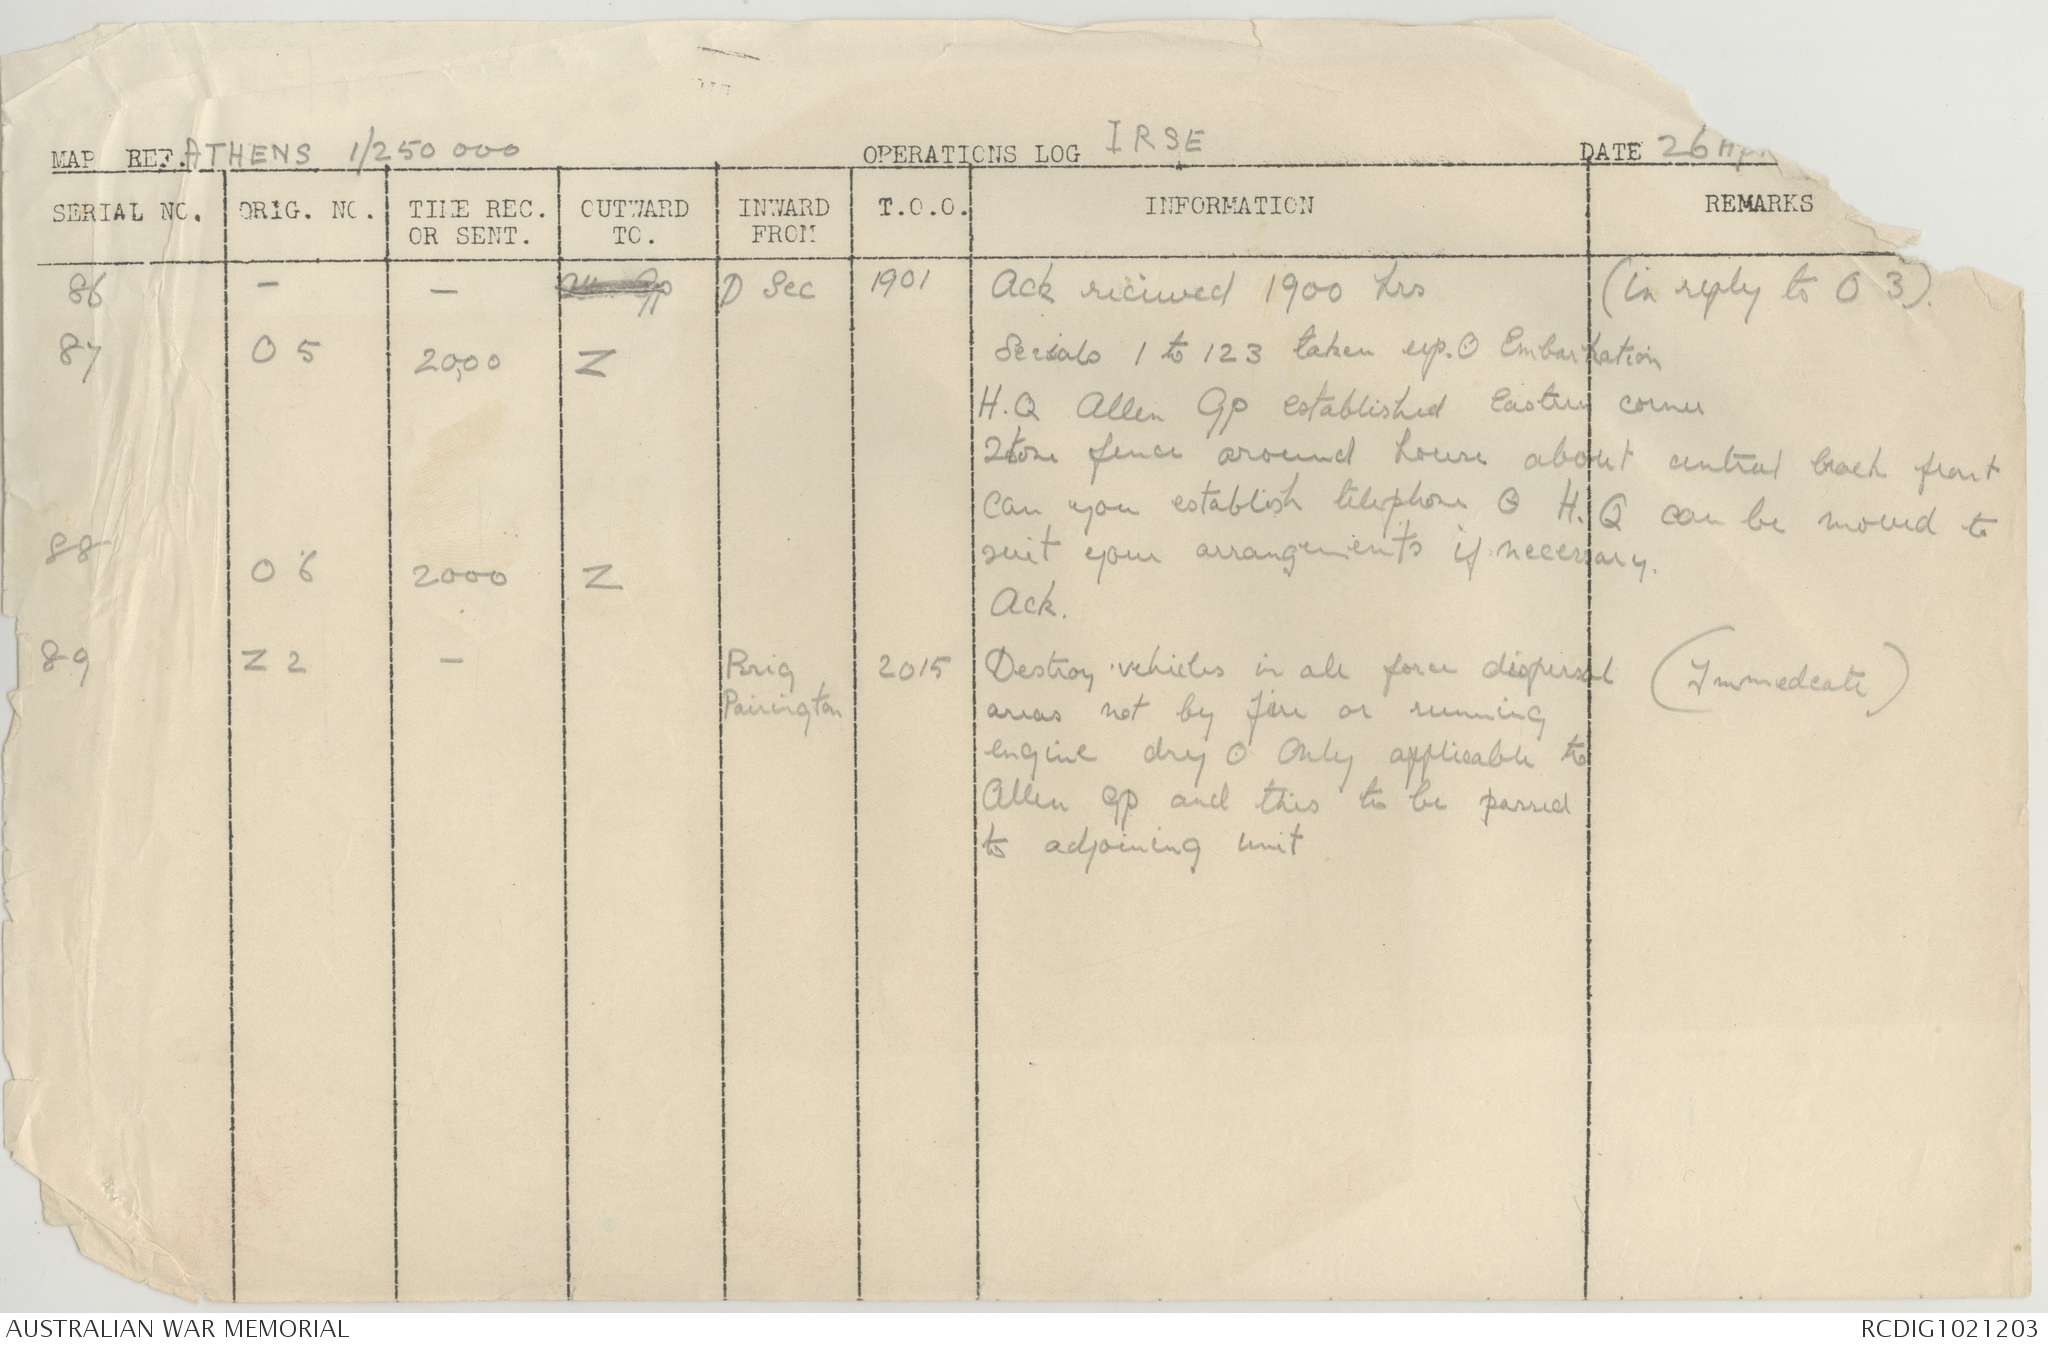 MAP REF. ATHENS 1/250 000 OPERATIONS LOG IRSE DATE 26
SERIAL NO. ORIG. NO. TIME REC. OR SENT. OUTWARD TO. INWARD FROM T.O.O. INFORMATION REMARKS
86 — — D Sec 1901 Ack recieved 1900 hrs (in reply to O 3).
87 O 5 2000 Z Serials 1 to 123 taken up. O Embarkation
H.Q Allen Gp established Eastern corner
fence around house about central beach front
Can you establish telephone O H.Q can be moved to
suit your arrangements if necessary.
88 O 6 2000 Z
Ack.
89 Z 2 — Brig 2015 Destroy vehicles in all force dispersal (Immediate)
areas not by fire or running
engine dry O Only applicable to
Allen Gp and this to be passed
to adjoining unit
AUSTRALIAN WAR MEMORIAL RCDIG1021203